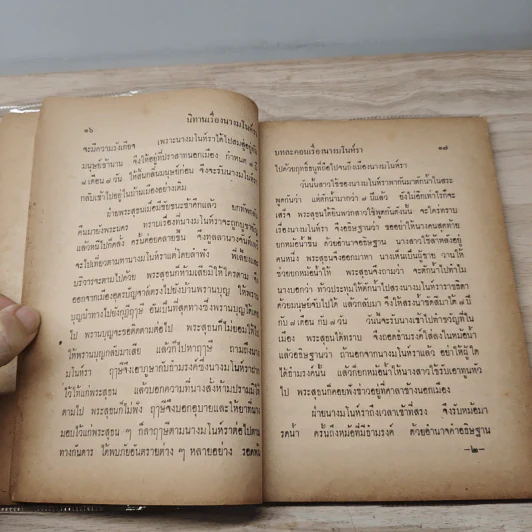 ๑๖
นิทานเรื่องนางมโนห์รา
จะมีความรังเกียจ เพราะนางมโนห์ราได้ไปสมสู่อยู่กับ
มนุษย์ช้านาน จึงให้อยู่ที่ปราสาทนอกเมือง กำหนด ๗ ปี
๗ เดือน ๗ วัน ให้สิ้นกลิ่นมนุษย์ก่อน จึงจะรับนางมโนห์รา
กลับเข้าไปอยู่ในม้านเมืองอย่างเดิม
ฝ่ายพระสุธนเมื่อมีชัยชนะข้าศึกแล้ว ยกทัพกลับ
คืนมายังพระนคร ทราบเรื่องที่นางมโนห์ราจะถูกบูชายัญ
แล้วหนีไปก็คลั่ง ครั้นค่อยคลายขึ้น จึงทูลลานางจันท
จะไปเที่ยวตามนางมโนห์ราแต่โดยลำพัง พี่เลี้ยงและ
บริวารจะตามไปด้วย พระสุธนก็ห้ามเสียมิให้ใครตาม จึง
ออกจากเมืองอุดรบัญจาล์ตรงไปยังบ้านพรานบุญ ให้พราน
บุญนำทางไปยังกุฎีฤาษี อันเป็นที่สุดทางซึ่งพรานบุญได้เคย
ไป พรานบุญจะขอติดตามต่อไป พระสุธนก็ไม่ยอมให้ไป
ให้พรานบุญกลับมาเสีย แล้วก็ไปหาฤาษี ถามถึงนาง
มโนห์รา ฤาษีจึงเอาภูษากับธำมรงค์ซึ่งนางมโนห์ราฝาก
ไว้ให้แก่พระสุธน แล้วบอกความที่นางสั่งห้ามปรามมิให้
ตามไป พระสุธนก็ไม่ฟัง ฤาษีจึงบอกอุบายและให้ยาทา
มอบไว้แก่พระสุธน ๆ ก็ลาฤาษีตามนางมโนห์ราต่อไปตาม
ทางกันดาร ได้พบภัยอันตรายต่าง ๆ หลายอย่าง รอดพ้น
บทละคอนเรื่องนางมโนห์รา
๑๗
ไปด้วยฤทธิ์ธนูที่ถือไปจนถึงเมืองนางมโนห์รา
วันนั้นสาวใช้ของนางมโนห์ราพากันมาตักน้ำในสระ
พูดกันว่า แต่ตักน้ำมากว่า ๗ ปีแล้ว ยังไม่อีกเท่าไรก็จะ
เสร็จ พระสุธนได้ยินพวกสาวใช้พูดกันดังนั้น จะใคร่ทราบ
เรื่องนางมโนห์รา จึงอธิษฐานว่า ขออย่าให้นางคนสุดท้าย
ยกหม้อน้ำขึ้น ด้วยอำนาจอธิษฐาน นางสาวใช้ล้าหลังอยู่
คนหนึ่ง พระสุธนจึงออกมาหา นางเห็นเป็นผู้ชาย วานให้
ช่วยยกหม้อน้ำให้ พระสุธนจึงถามว่า จะตักน้ำไปทำไม
นางบอกว่า ท้าวประทุมให้ตักน้ำไปสรงนางมโนห์ราราชธิดา
ด้วยมนุษย์จับไปได้ แล้วกลับมา จึงให้สรงน้ำขัดสีมาได้ ๗ ปี
กับ ๗ เดือน กับ ๗ วัน วันนี้จะรับนางเข้าไปทำขวัญที่ใน
เมือง พระสุธนได้ทราบ จึงถอดธำมรงค์ใส่ลงในหม้อน้ำ
แล้วอธิษฐานว่า ถ้านอกจากนางมโนห์ราแล้ว อย่าให้ผู้ใด
ได้ธำมรงค์นั้น แล้วก็ยกหม้อน้ำให้นางสาวใช้รับเอาทูนหัว
ไป พระสุธนก็คอยฟังข่าวอยู่ที่ศาลาข้างนอกเมือง
ฝ่ายนางมโนห์ราถึงเวลาเข้าที่สรง จึงรับหม้อมา
รดน้ำ ครั้นถึงหม้อที่มีธำมรงค์ ด้วยอำนาจคำอธิษฐาน
—๒—